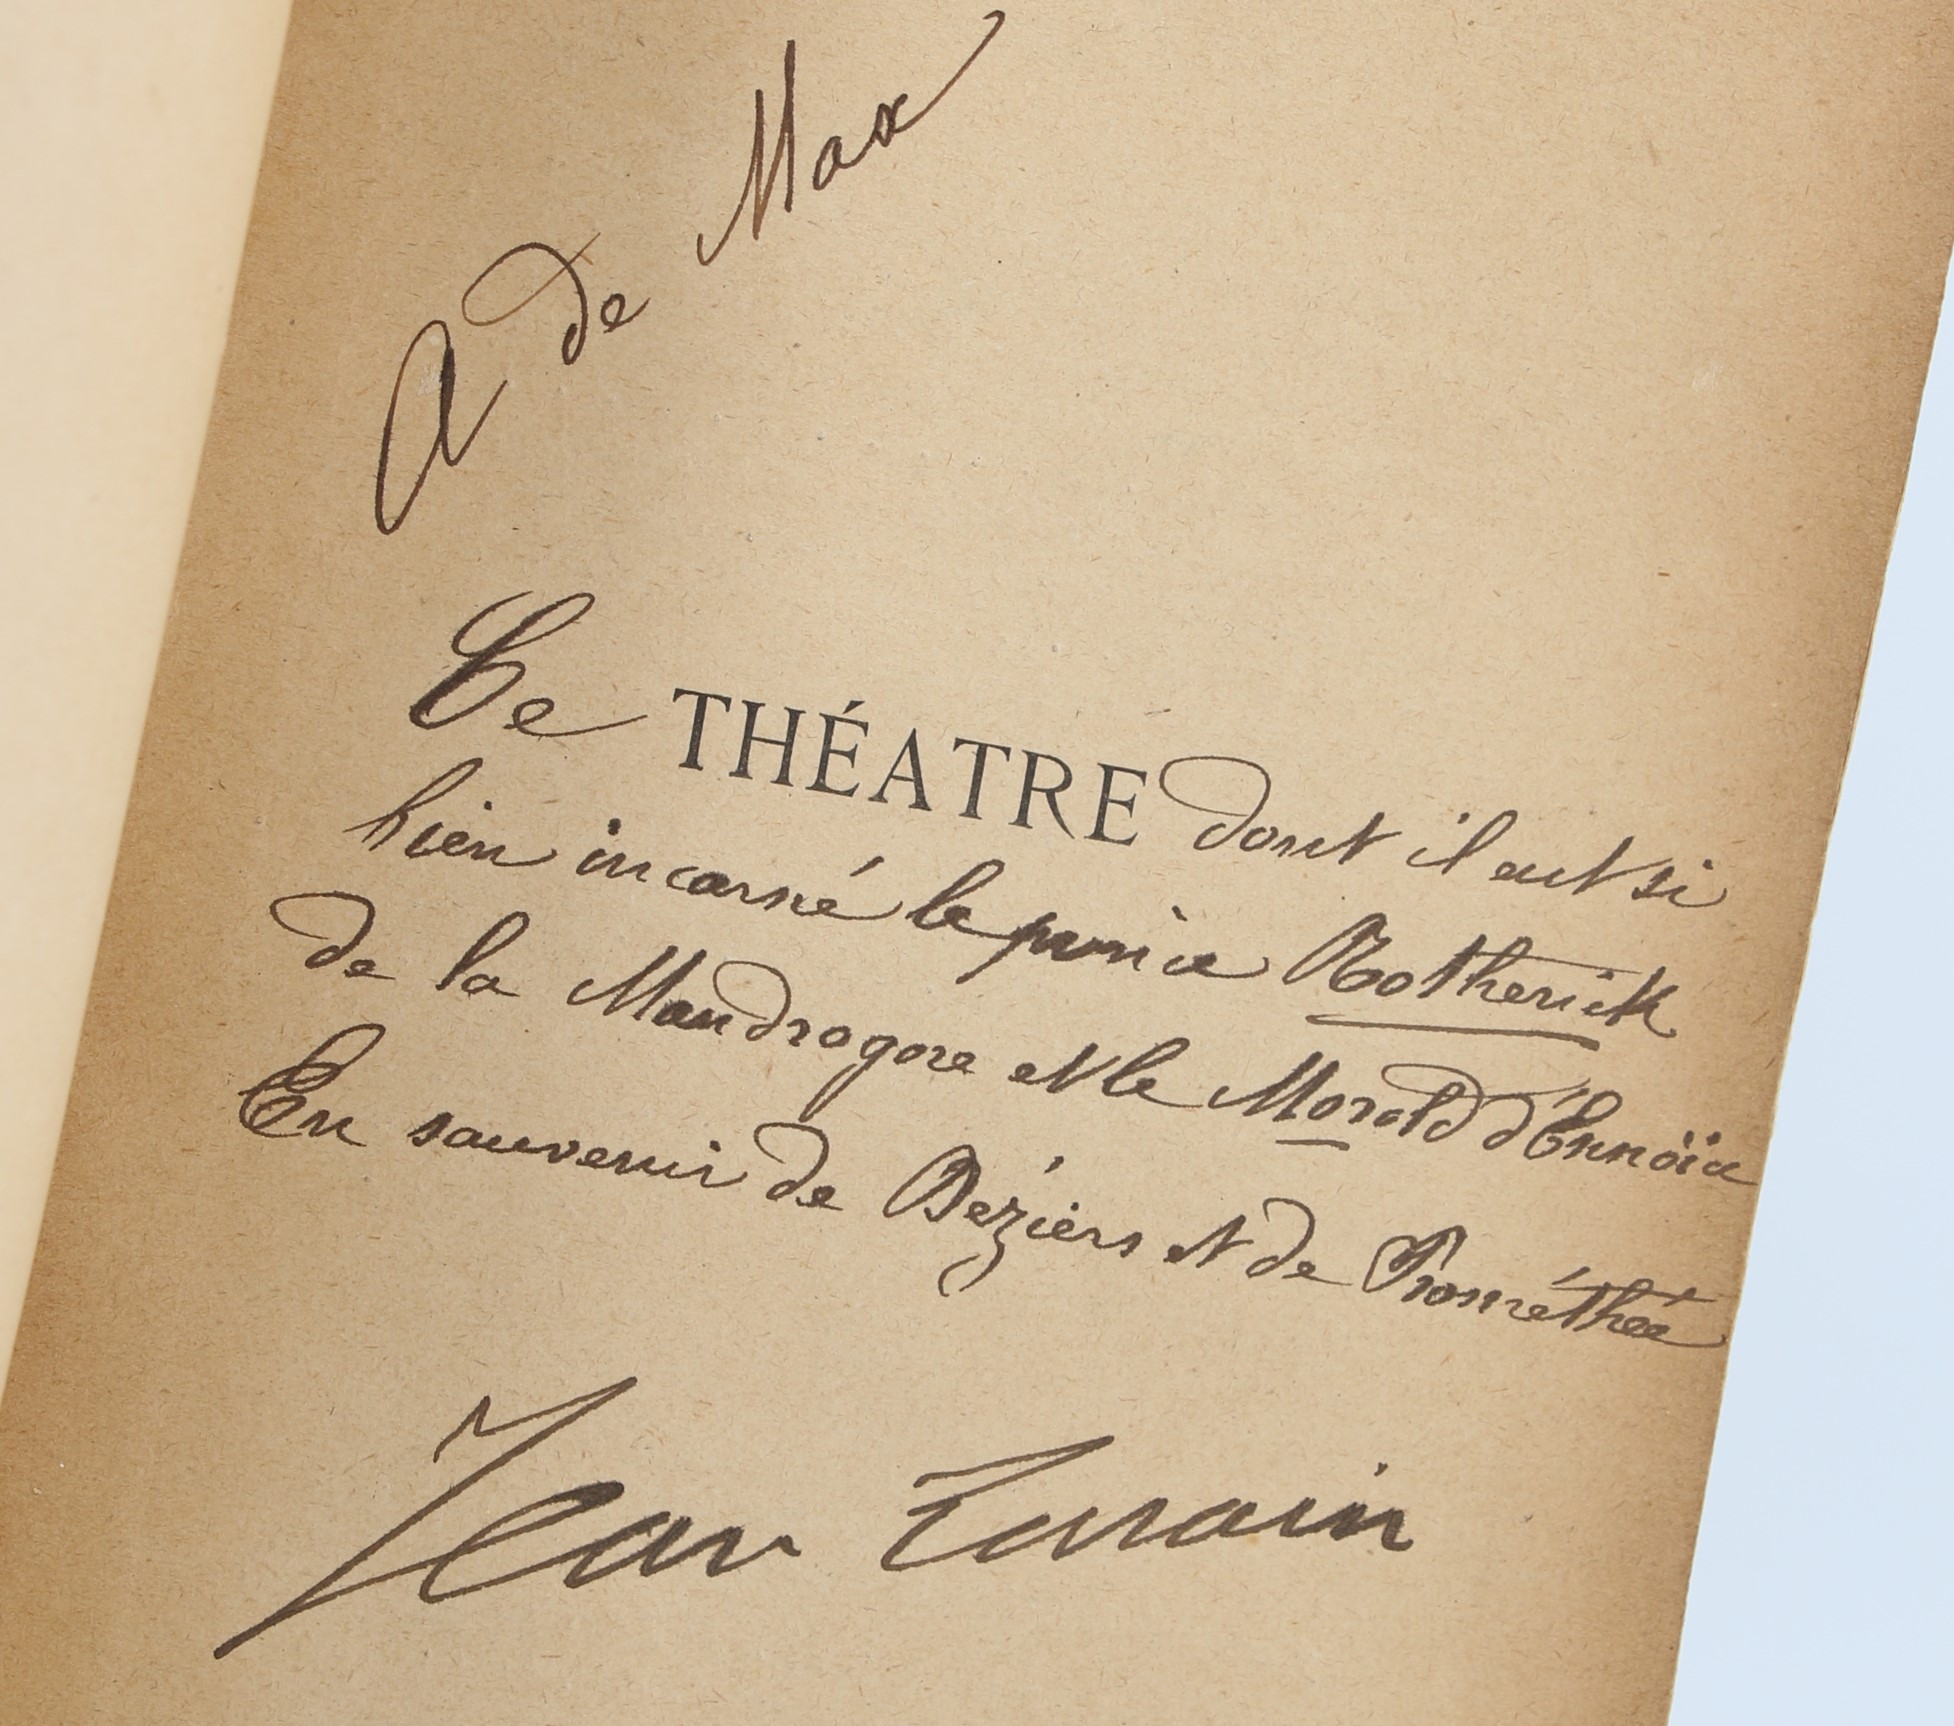 A de Max
Ce THÉATRE dont il eut si
bien incarné le prince Rotherick
de la Mandragore et le Morold d'Ennoïa
En souvenir de Béziers et de Prométhée
Jean Lorrain